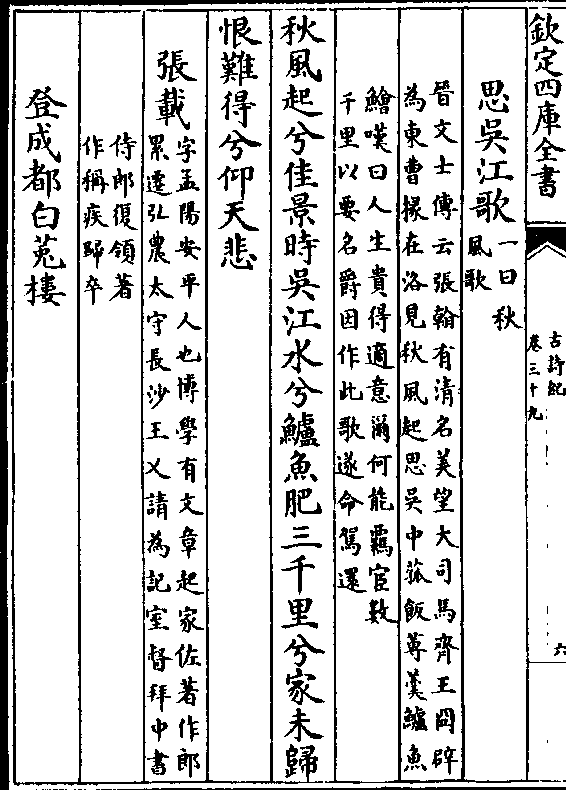 欽定四庫全書
古詩紀
卷三十九
六
思吳江歌一曰秋
風歌
晉文士傳云張翰有清名美望大司馬齊王冏辟
為東曹掾在洛見秋風起思吳中菰飯蓴羹鱸魚
鱠嘆曰人生貴得適意爾何能羈宦數
千里以要名爵因作此歌遂命駕還
秋風起兮佳景時吳江水兮鱸魚肥三千里兮家未歸
恨難得兮仰天悲
張載字孟陽安平人也博學有文章起家佐著作郎
累遷弘農太守長沙王乂請為記室督拜中書
侍郎復領著
作稱疾歸卒
登成都白菟樓